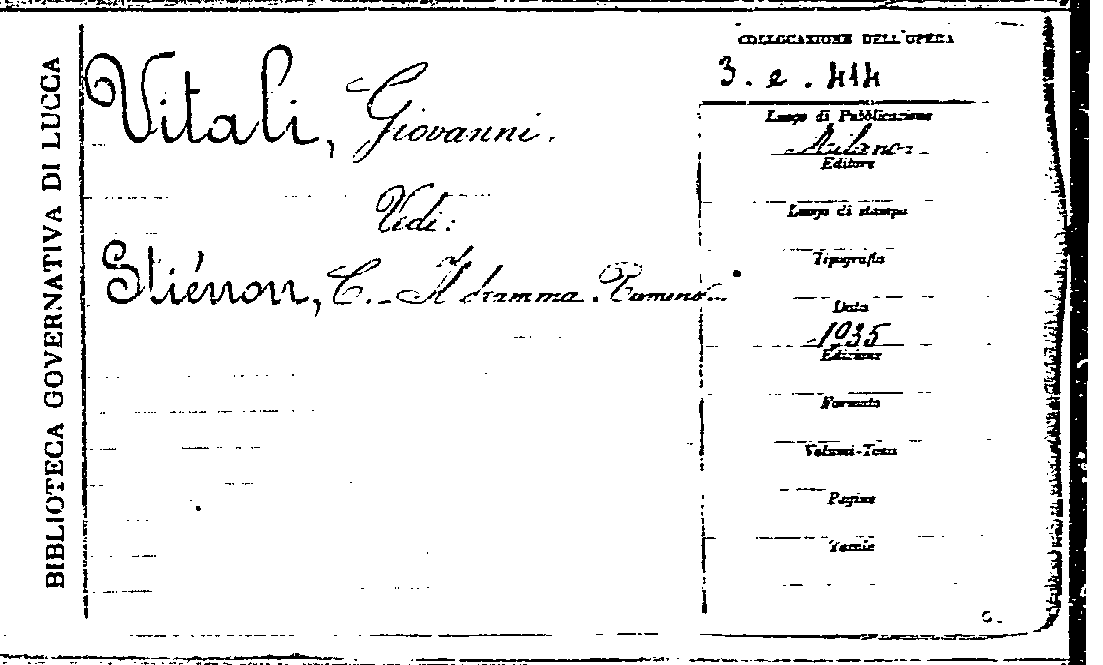 BIBLIOTECA GOVERNATIVA DI LUCCA
Vitali, Giovanni.
Vedi:
Stiénon, C. - Il dramma
COLLOCAZIONE DELL'OPERA
3. e. 414
Luogo di Pubblicazione
Milano
Editore
Luogo di stampa
Tipografia
Data
1935
Edizione
Formato
Volumi-Tomi
Pagine
Tavole